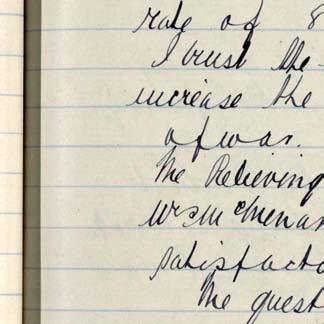 rate of 8
I trust the
increase the
of war.
The Relieving
satisfacto
The quest